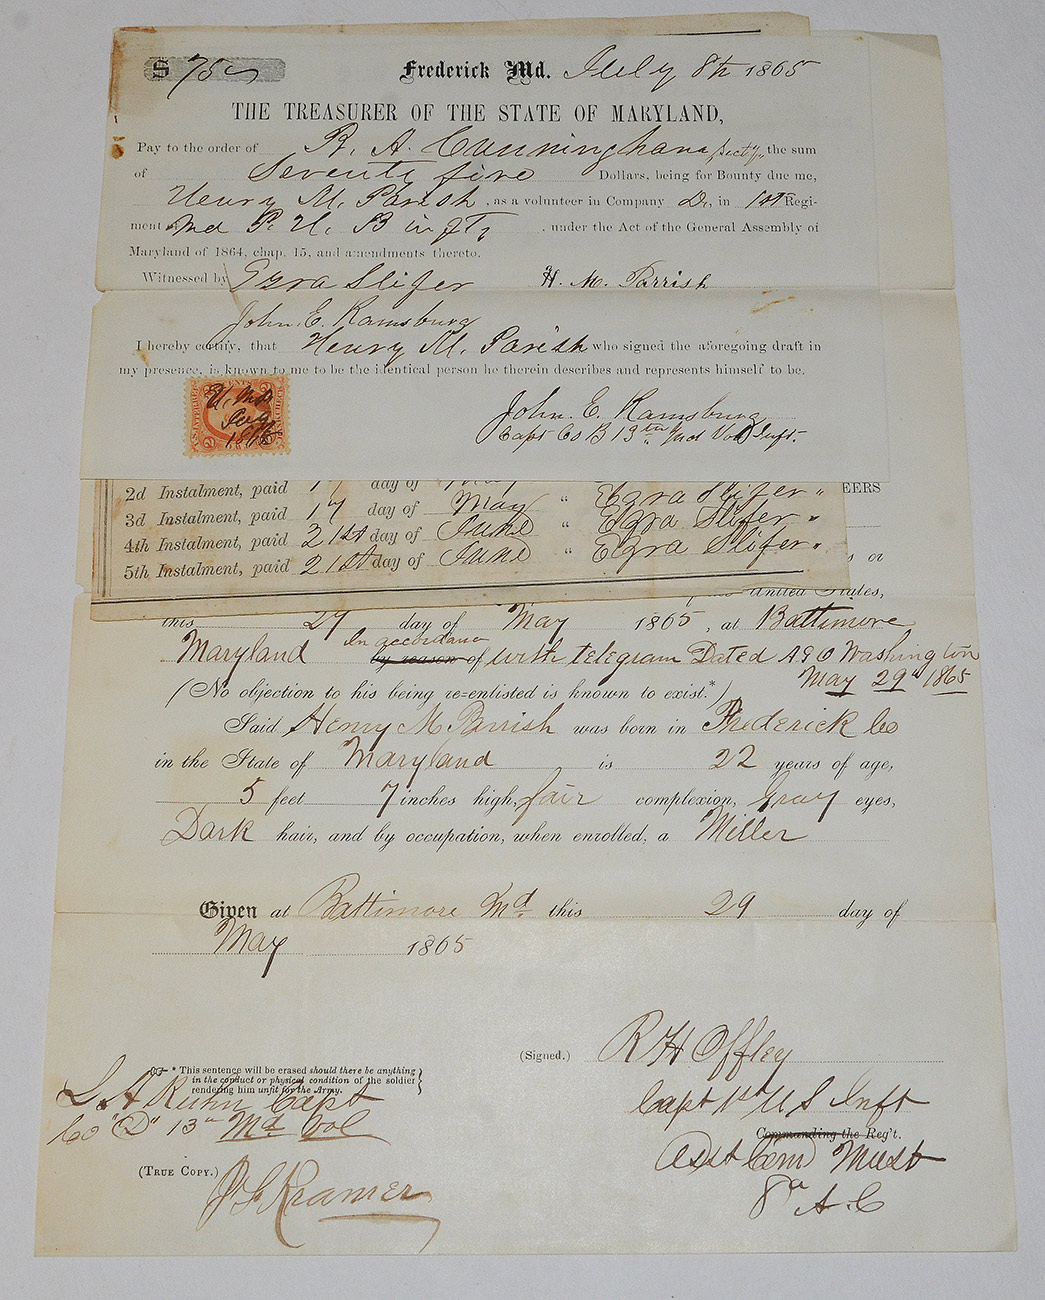 $ 75
Frederick Md. July 8th 1865
THE TREASURER OF THE STATE OF MARYLAND,
Pay to the order of R. A. Cunningham Sect'y, the sum
of Seventy five Dollars, being for Bounty due me,
Henry M. Parish, as a volunteer in Company D, in 1st Regi-
ment Md P. H. B , under the Act of the General Assembly of
Maryland of 1864, chap. 15, and amendments thereto.
Witnessed by Ezra Slifer H. M. Parrish
John E. Ramsburg
I hereby certify, that Henry M. Parish who signed the aforegoing draft in
my presence, is known to me to be the identical person he therein describes and represents himself to be.
John E. Ramsburg
Capt Co B 13th Md Vol Inft.
2d Instalment, paid 17 day of May " Ezra Slifer "
3d Instalment, paid 17 day of May " Ezra Slifer "
4th Instalment, paid 21st day of June " Ezra Slifer "
5th Instalment, paid 21st day of June " Ezra Slifer "
EERS
s or
United States,
this 29 day of May 1865, at Baltimore
Maryland In accordance by reason of with telegram Dated AGO Washington
May 29th 1865
(No objection to his being re-enlisted is known to exist.*)
Said Henry M Parrish was born in Frederick Co
in the State of Maryland is 22 years of age,
5 feet 7 inches high, fair complexion, Gray eyes,
Dark hair, and by occupation, when enrolled, a Miller
Given at Baltimore Md this 29 day of
May 1865
(Signed.) R H Offley
Capt 1st U S Inft
Commanding the Reg't.
Asst Com Must
8th A.C
* This sentence will be erased should there be anything
in the conduct or physical condition of the soldier
rendering him unfit for the Army.
Capt
Co "D" 13th Md Vol
(TRUE COPY.) Kramer